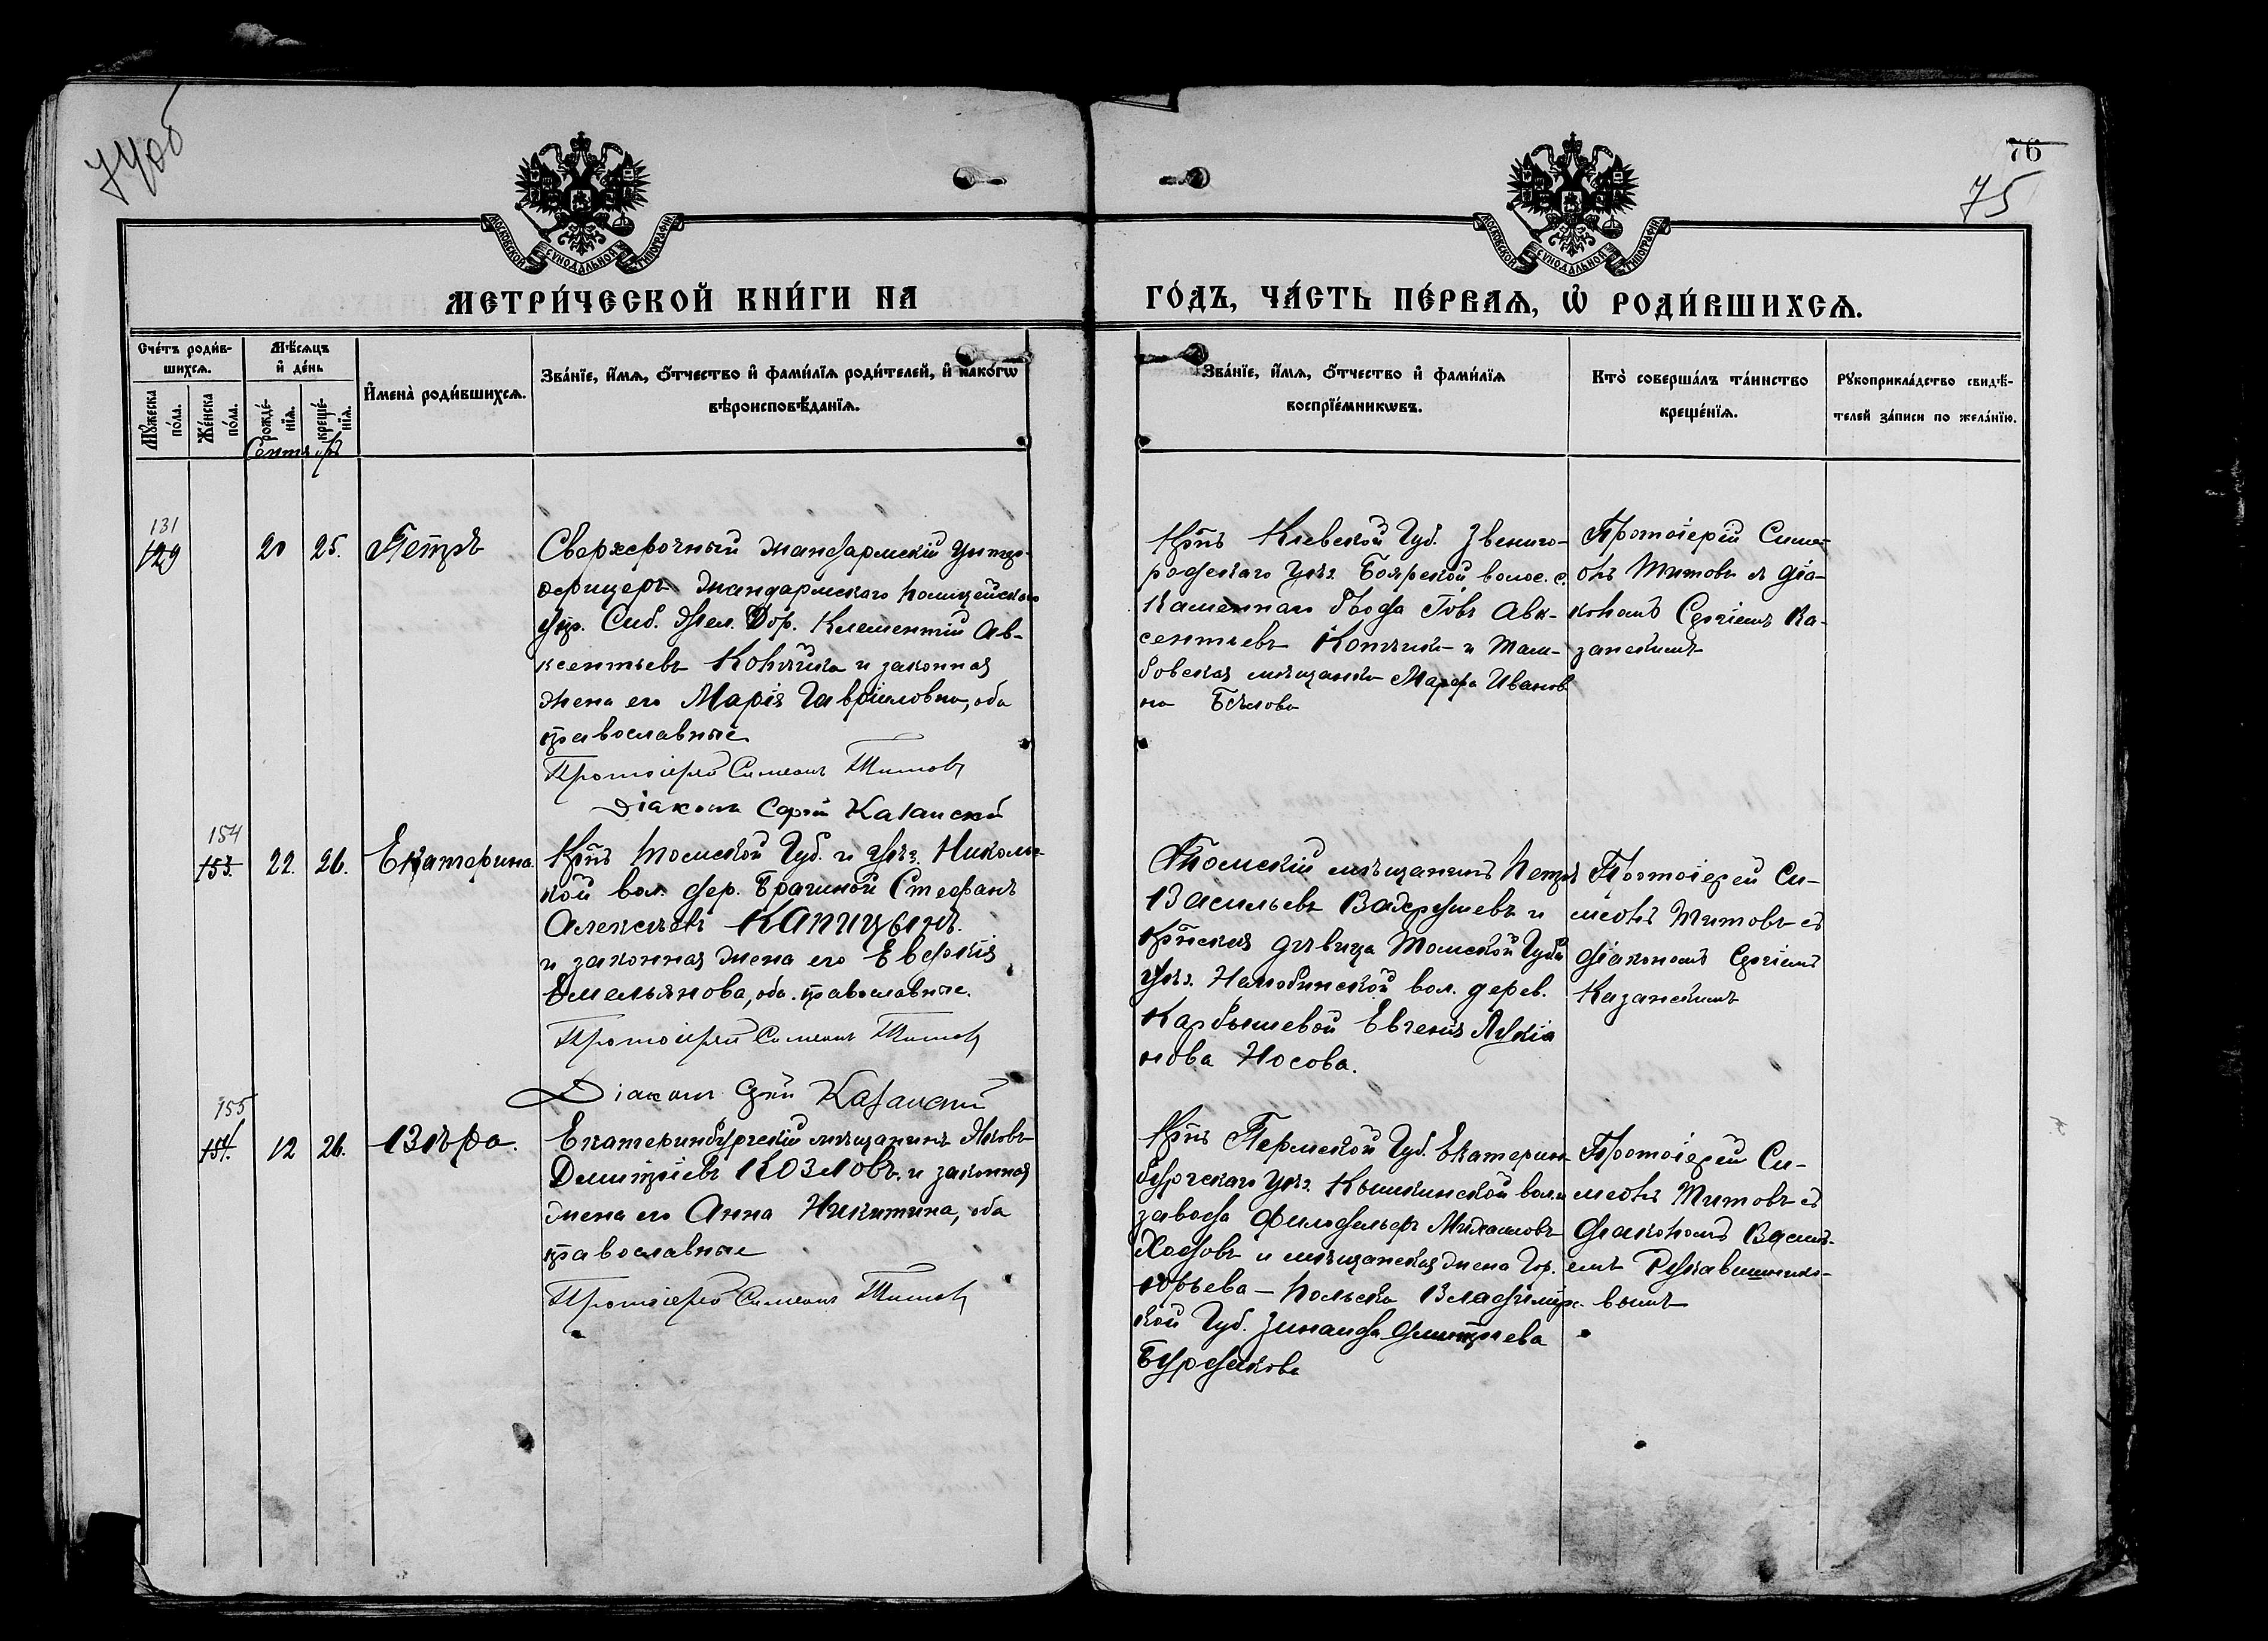 74об
76
75
МОСКОВСКОЙ СѴНОДАЛЬНОЙ ТИПОГРАФІИ
МОСКОВСКОЙ СѴНОДАЛЬНОЙ ТИПОГРАФІИ
МЕТРИ́ЧЕСКОЙ КНИ́ГИ НА
ГО́ДЪ, ЧА́СТЬ ПЕ́РВАѦ, Ѡ҆ РОДИ́ВШИХСѦ.
Сче́тъ роди́в-
шихсѧ.
Мꙋ́жеска
по́ла.
Же́нска
по́ла.
Мѣ́сѧцъ
и҆ де́нь
рожде́-
нїѧ.
креще́-
нїѧ.
И҆мена̀ роди́вшихсѧ.
Зва́нїе, и҆́мѧ, ѻ҆́тчество и҆ фами́лїѧ роди́телей, и҆ како́гѡ
вѣроисповѣ́данїѧ.
Зва́нїе, и҆́мѧ, ѻ҆́тчество и҆ фами́лїѧ
воспрїе́мникѡвъ.
Кто̀ соверша́лъ та́инство
креще́нїѧ.
Рꙋкоприкла́дство свидѣ́-
телей за́писи по жела́нїю.
Сентябрь
131
129
20 25. Петръ
Сверхсрочный жандармскій унтеръ-
офицеръ Жандармскаго Полицейскаго
упр. Сиб. Жел. Дор. Климентій Ав-
ксентьевъ и законная
жена его Марія Гавріиловна, оба
православные
Протоіерей Симеонъ Титовъ
Діаконъ Сергій Казанскій
Крнъ Кіевской Губ. Звениго-
родскаго уѣз. Боярской волос. с.
Каменнаго Брода Іовъ Авк-
сентьевъ и Там-
бовская мѣщанка Марфа Иванов
на Бѣлова
Протоіерей Симе-
онъ Титовъ съ діа-
кономъ Сергіемъ Ка-
занскимъ
154
153.
22. 26. Екатерина.
Крнъ Томской Губ. и уѣз. Николь-
кой вол. дер. Брагиной Стефанъ
Алексѣевъ Капицынъ.
и законная жена его Евдокія
Емельянова, оба православные.
Протоіерей Симеонъ Титовъ
Діаконъ Сергій Казанскій
Томскій мѣщанинъ Петръ
Васильевъ Вахрушевъ и
крнская дѣвица Томской Губ. и
уѣз. Нелюбинской вол. дерев.
Карбышевой Евгенія Лукіа
нова Носова.
Протоіерей Си-
меонъ Титовъ съ
діакономъ Сергіемъ
Казанскимъ
155
154.
12 26. Вѣра.
Екатеринбургскій мѣщанинъ Яковъ
Димитріевъ Козловъ и законная
жена его Анна Никитина, оба
православные
Протоіерей Симеонъ Титовъ
Крнъ Пермской Губ. Екатерин-
бургскаго уѣз. вол. и
завода Филадельфъ Михаиловъ
Ходовъ и мѣщанская жена Гор.
Юрьева-Польска Владимірс-
кой Губ. Зинаида Димитріева
Бурдакова
Протоіерей Си-
меонъ Титовъ съ
діакономъ Васил-
емъ Рукавишнико-
вымъ